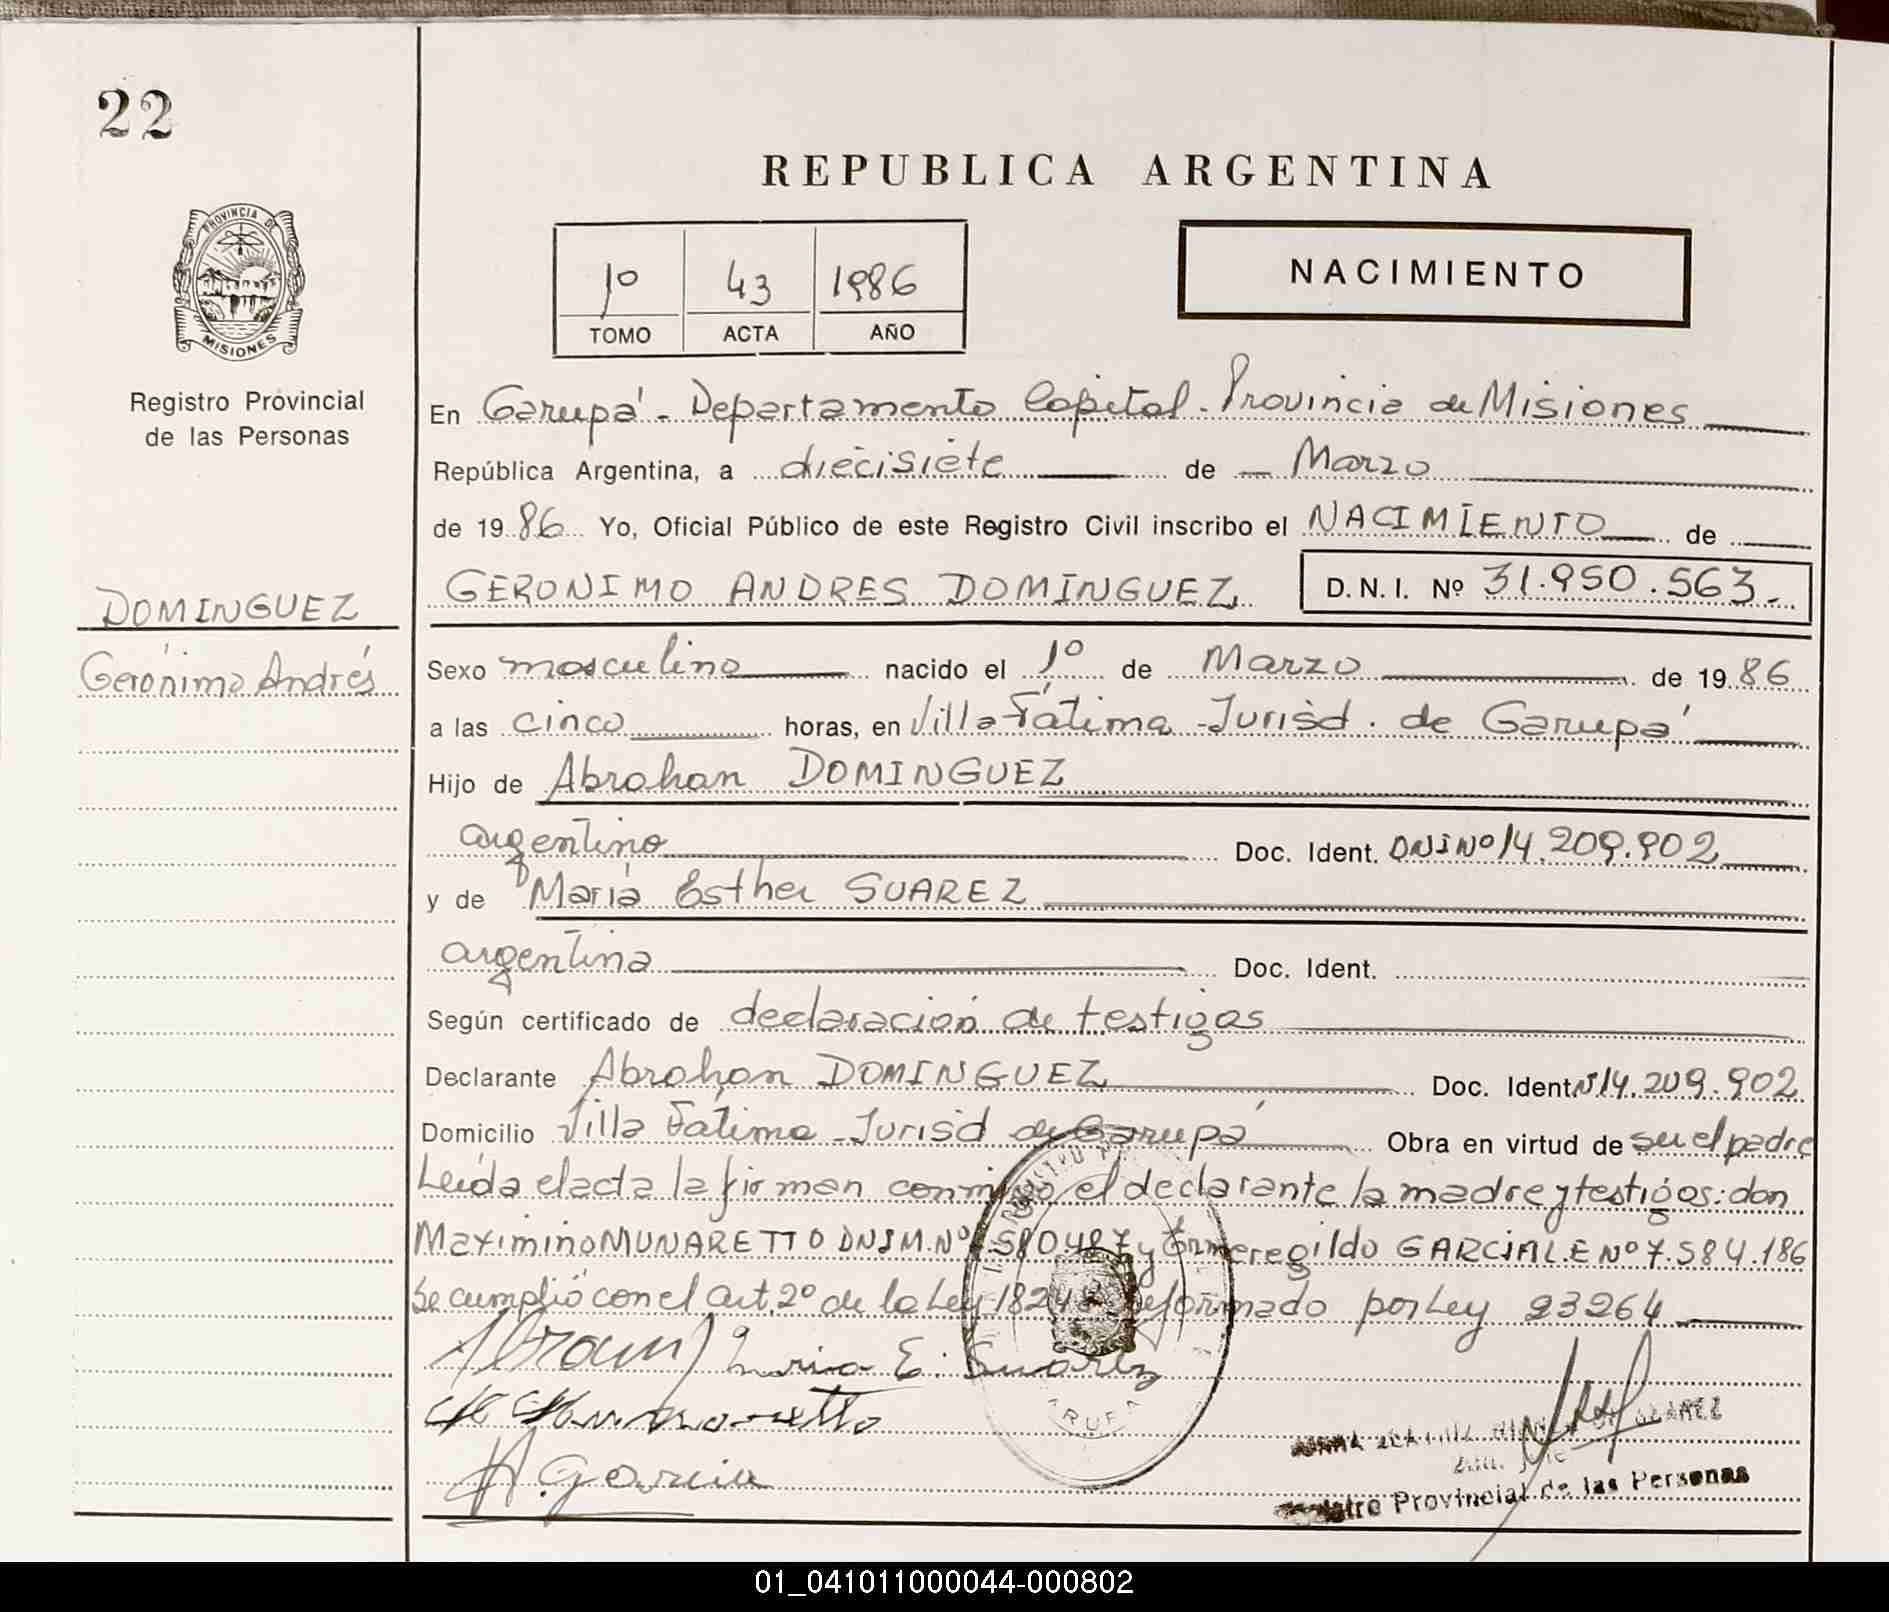 22
REPUBLICA ARGENTINA
PROVINCIA DE
MISIONES
Registro Provincial
de las Personas
1º 43 1986
TOMO ACTA AÑO
NACIMIENTO
En Garupá - Departamento Capital - Provincia de Misiones
República Argentina, a diecisiete de Marzo
de 1986 Yo, Oficial Público de este Registro Civil inscribo el NACIMIENTO de
GERONIMO ANDRES DOMINGUEZ D.N.I. Nº 31.950.563.-
DOMINGUEZ
Gerónimo Andrés
Sexo masculino nacido el 1º de Marzo de 1986
a las cinco horas, en Villa Fátima - Jurisd. de Garupá
Hijo de Abrahan DOMINGUEZ
argentino Doc. Ident. DNI Nº 14.209.902
y de María Esther SUAREZ
argentina Doc. Ident.
Según certificado de declaración de testigos
Declarante Abrahan DOMINGUEZ Doc. Ident. Nº 14.209.902
Domicilio Villa Fátima - Jurisd de Garupá Obra en virtud de su el padre
Leída el acta la firman conmigo el declarante la madre y testigos: don
Maximino MUNARETTO DNIM. Nº 580487 y Ermeregildo GARCIA L.E Nº 7.584.186
Se cumplió con el art. 2º de la Ley 18248 reformado por Ley 23264
Maria E. Suarez
A. Garcia
Registro Provincial de las Personas
01_041011000044-000802